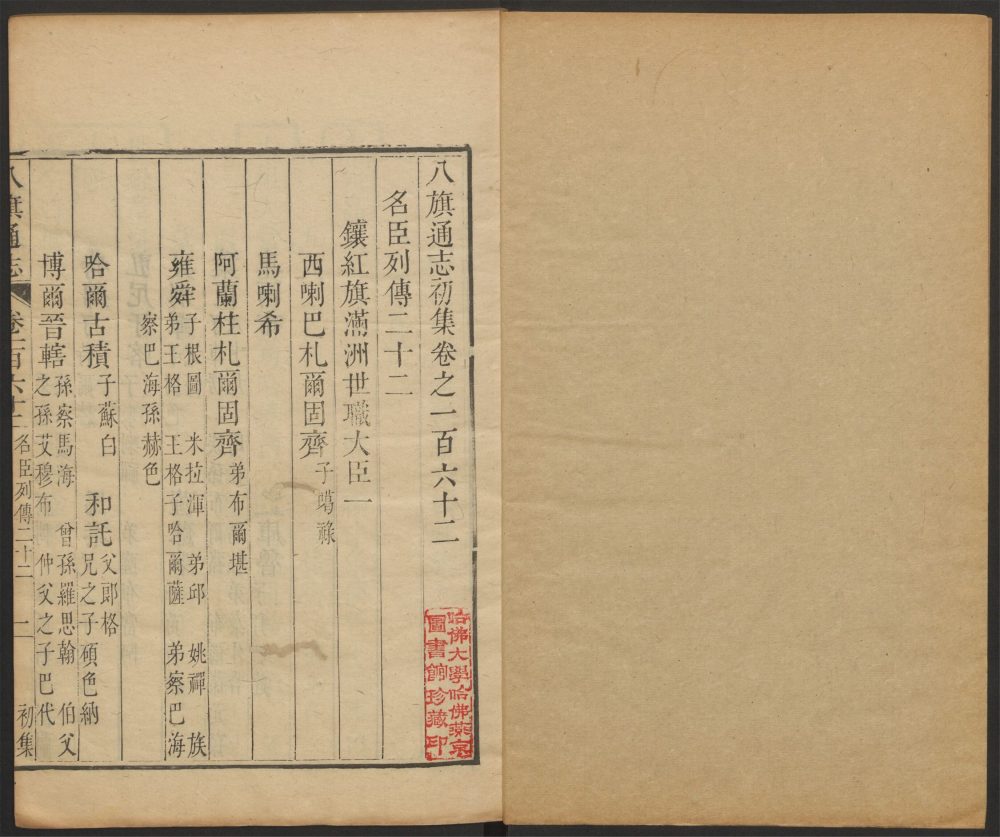 八旗通志初集卷之一百六十二
名臣列傳二十二
鑲紅旗滿洲世職大臣一
西喇巴札爾固齊 子噶祿
馬喇希
阿蘭柱札爾固齊 弟布爾堪
雍舜 子根圖 米拉渾 弟邱 姚禪 族
弟王格 王格子哈爾薩 弟察巴海
察巴海孫赫色
哈爾古積 子蘇白 和託 父郎格
兄之子碩色納
博爾晉轄 孫察馬海 曾孫羅思翰 伯父
之孫艾穆布 仲父之子巴代
八旗通志 卷一百六十二 名臣列傳二十二 一 初集
哈佛大學哈佛燕京
圖書館珍藏印